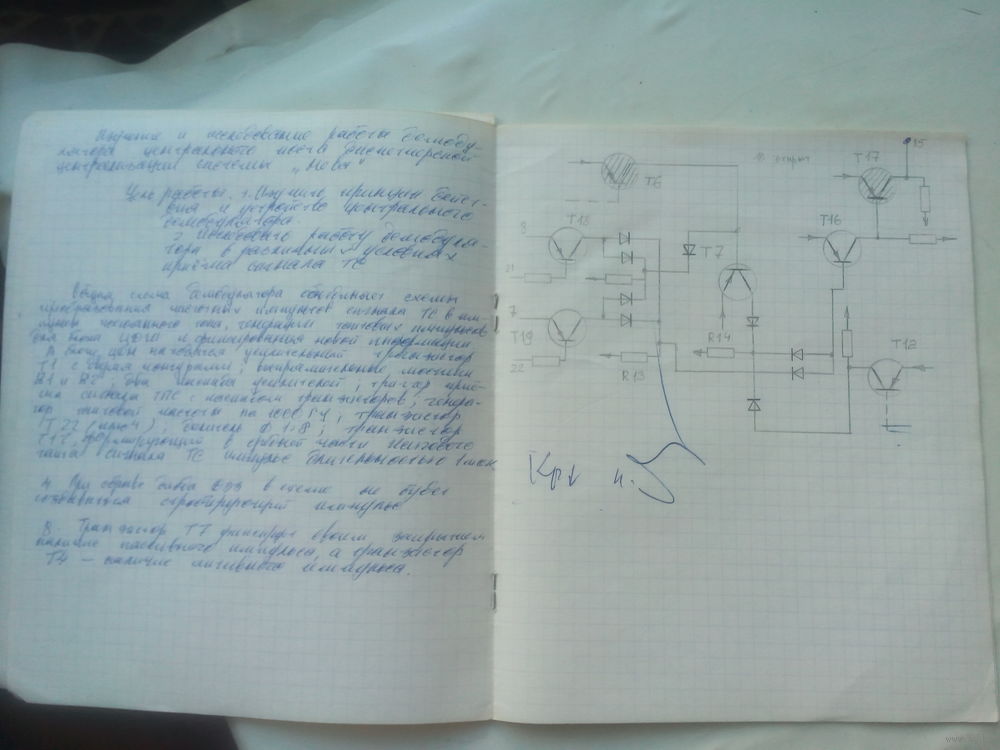 Изучение и исследование работы демоду-
лятора центрального поста диспетчерской
централизации системы „Нева"
Цель работы. 1. Изучить принцип дейст-
вия и устройство центрального
демодулятора.
2. Исследовать работу демодуля-
тора в различных условиях
приёма сигнала ТС
Общая схема демодулятора объединяет схемы
преобразования частотных импульсов сигнала ТС в им-
пульсы постоянного тока, генерации тактовых импульсов
для блока и формирования новой информации
В блоке ЦДМ находятся усилительный транзистор
Т1 с двумя контурами, выпрямительные мостики
В1 и В2, два каскада усилителей, триггер приё-
ма сигнала ТС с транзисторов, генера-
тор тактовой частоты на 1000 Гц, транзистор
Т22 (ключ), делитель Ф 1-8, транзистор
Т12, формирующий в средней части тактового
такта сигнала ТС импульс длительностью 1 мсек
4. При обрыве диода в схеме не будет
появляться стробирующий импульс
8. Транзистор Т7 фиксирует своим закрытием
наличие пассивного импульса, а транзистор
Т4 – наличие активного импульса.
Т6
открыт
Т17
15
8
Т18
Т7
Т16
21
7
Т19
R14
Т12
22
R13